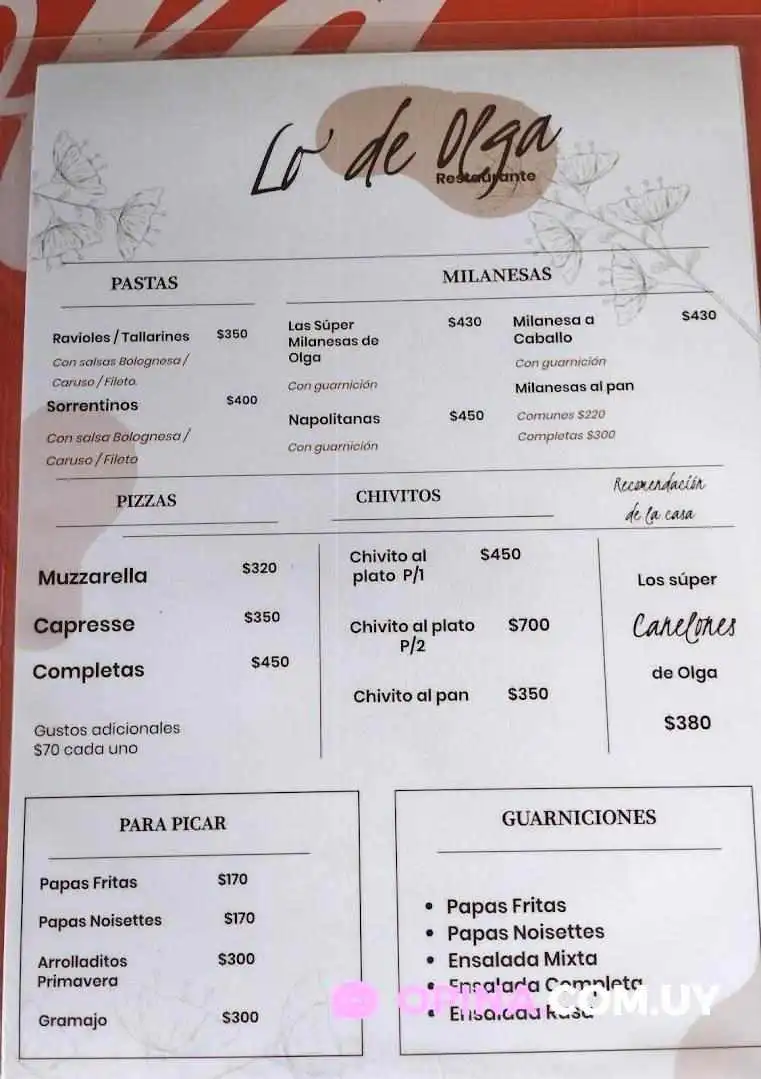 Lo de Olga
Restaurante
PASTAS
Ravioles / Tallarines $350
Con salsas Bolognesa /
Caruso / Fileto.
Sorrentinos $400
Con salsa Bolognesa /
Caruso / Fileto
MILANESAS
Las Súper $430
Milanesas de
Olga
Con guarnición
Napolitanas $450
Con guarnición
Milanesa a $430
Caballo
Con guarnición
Milanesas al pan
Comunes $220
Completas $300
PIZZAS
Muzzarella $320
Capresse $350
Completas $450
Gustos adicionales
$70 cada uno
CHIVITOS
Chivito al $450
plato P/1
Chivito al plato $700
P/2
Chivito al pan $350
Recomendación
de la casa
Los súper
Canelones
de Olga
$380
PARA PICAR
Papas Fritas $170
Papas Noisettes $170
Arrolladitos $300
Primavera
Gramajo $300
GUARNICIONES
• Papas Fritas
• Papas Noisettes
• Ensalada Mixta
• Ensalada Completa
• Ensalada Rusa
OPINA.COM.UY